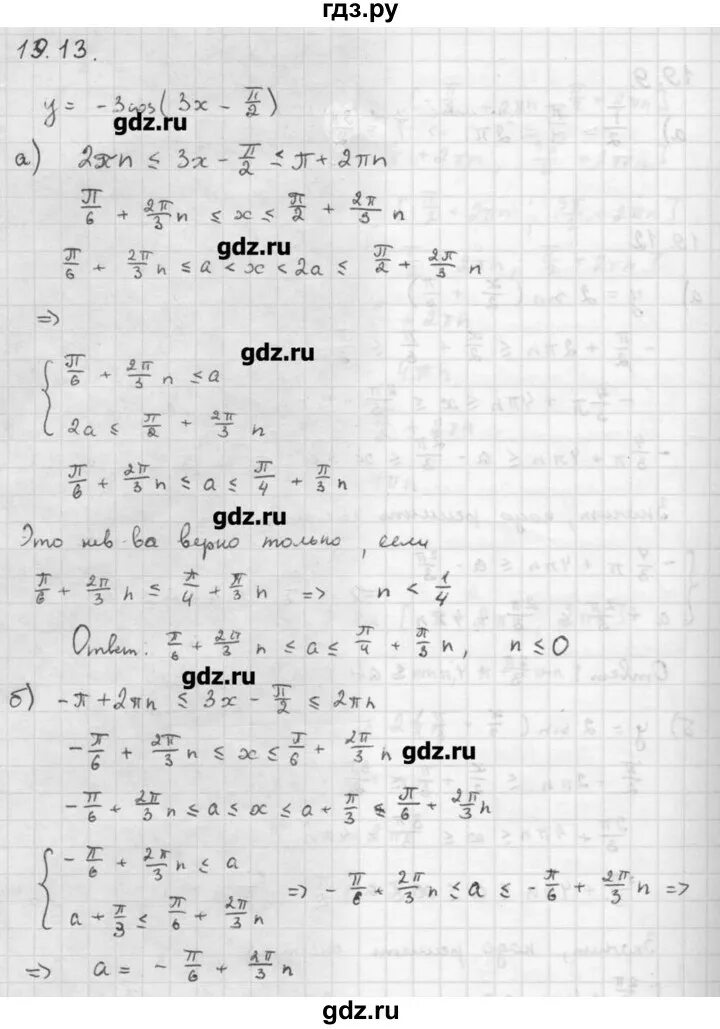 гдз.ру
19.13.
y = -3cos(3x - π/2)
gdz.ru
а) 2πn ≤ 3x - π/2 ≤ π + 2πn
π/6 + 2π/3 n ≤ x ≤ π/2 + 2π/3 n
gdz.ru
π/6 + 2π/3 n ≤ a < x < 2a ≤ π/2 + 2π/3 n
⇒
gdz.ru
{ π/6 + 2π/3 n ≤ a
2a ≤ π/2 + 2π/3 n
π/6 + 2π/3 n ≤ a ≤ π/4 + π/3 n
gdz.ru
Это нев-ва верно только, если
π/6 + 2π/3 n ≤ π/4 + π/3 n ⇒ n < 1/4
Ответ: π/6 + 2π/3 n ≤ a ≤ π/4 + π/3 n, n ≤ 0
gdz.ru
б) -π + 2πn ≤ 3x - π/2 ≤ 2πn
-π/6 + 2π/3 n ≤ x ≤ π/6 + 2π/3 n
gdz.ru
-π/6 + 2π/3 n ≤ a ≤ x ≤ a + π/3 ≤ π/6 + 2π/3 n
{ -π/6 + 2π/3 n ≤ a
a + π/3 ≤ π/6 + 2π/3 n
⇒ -π/6 + 2π/3 n ≤ a ≤ -π/6 + 2π/3 n ⇒
⇒ a = -π/6 + 2π/3 n
gdz.ru